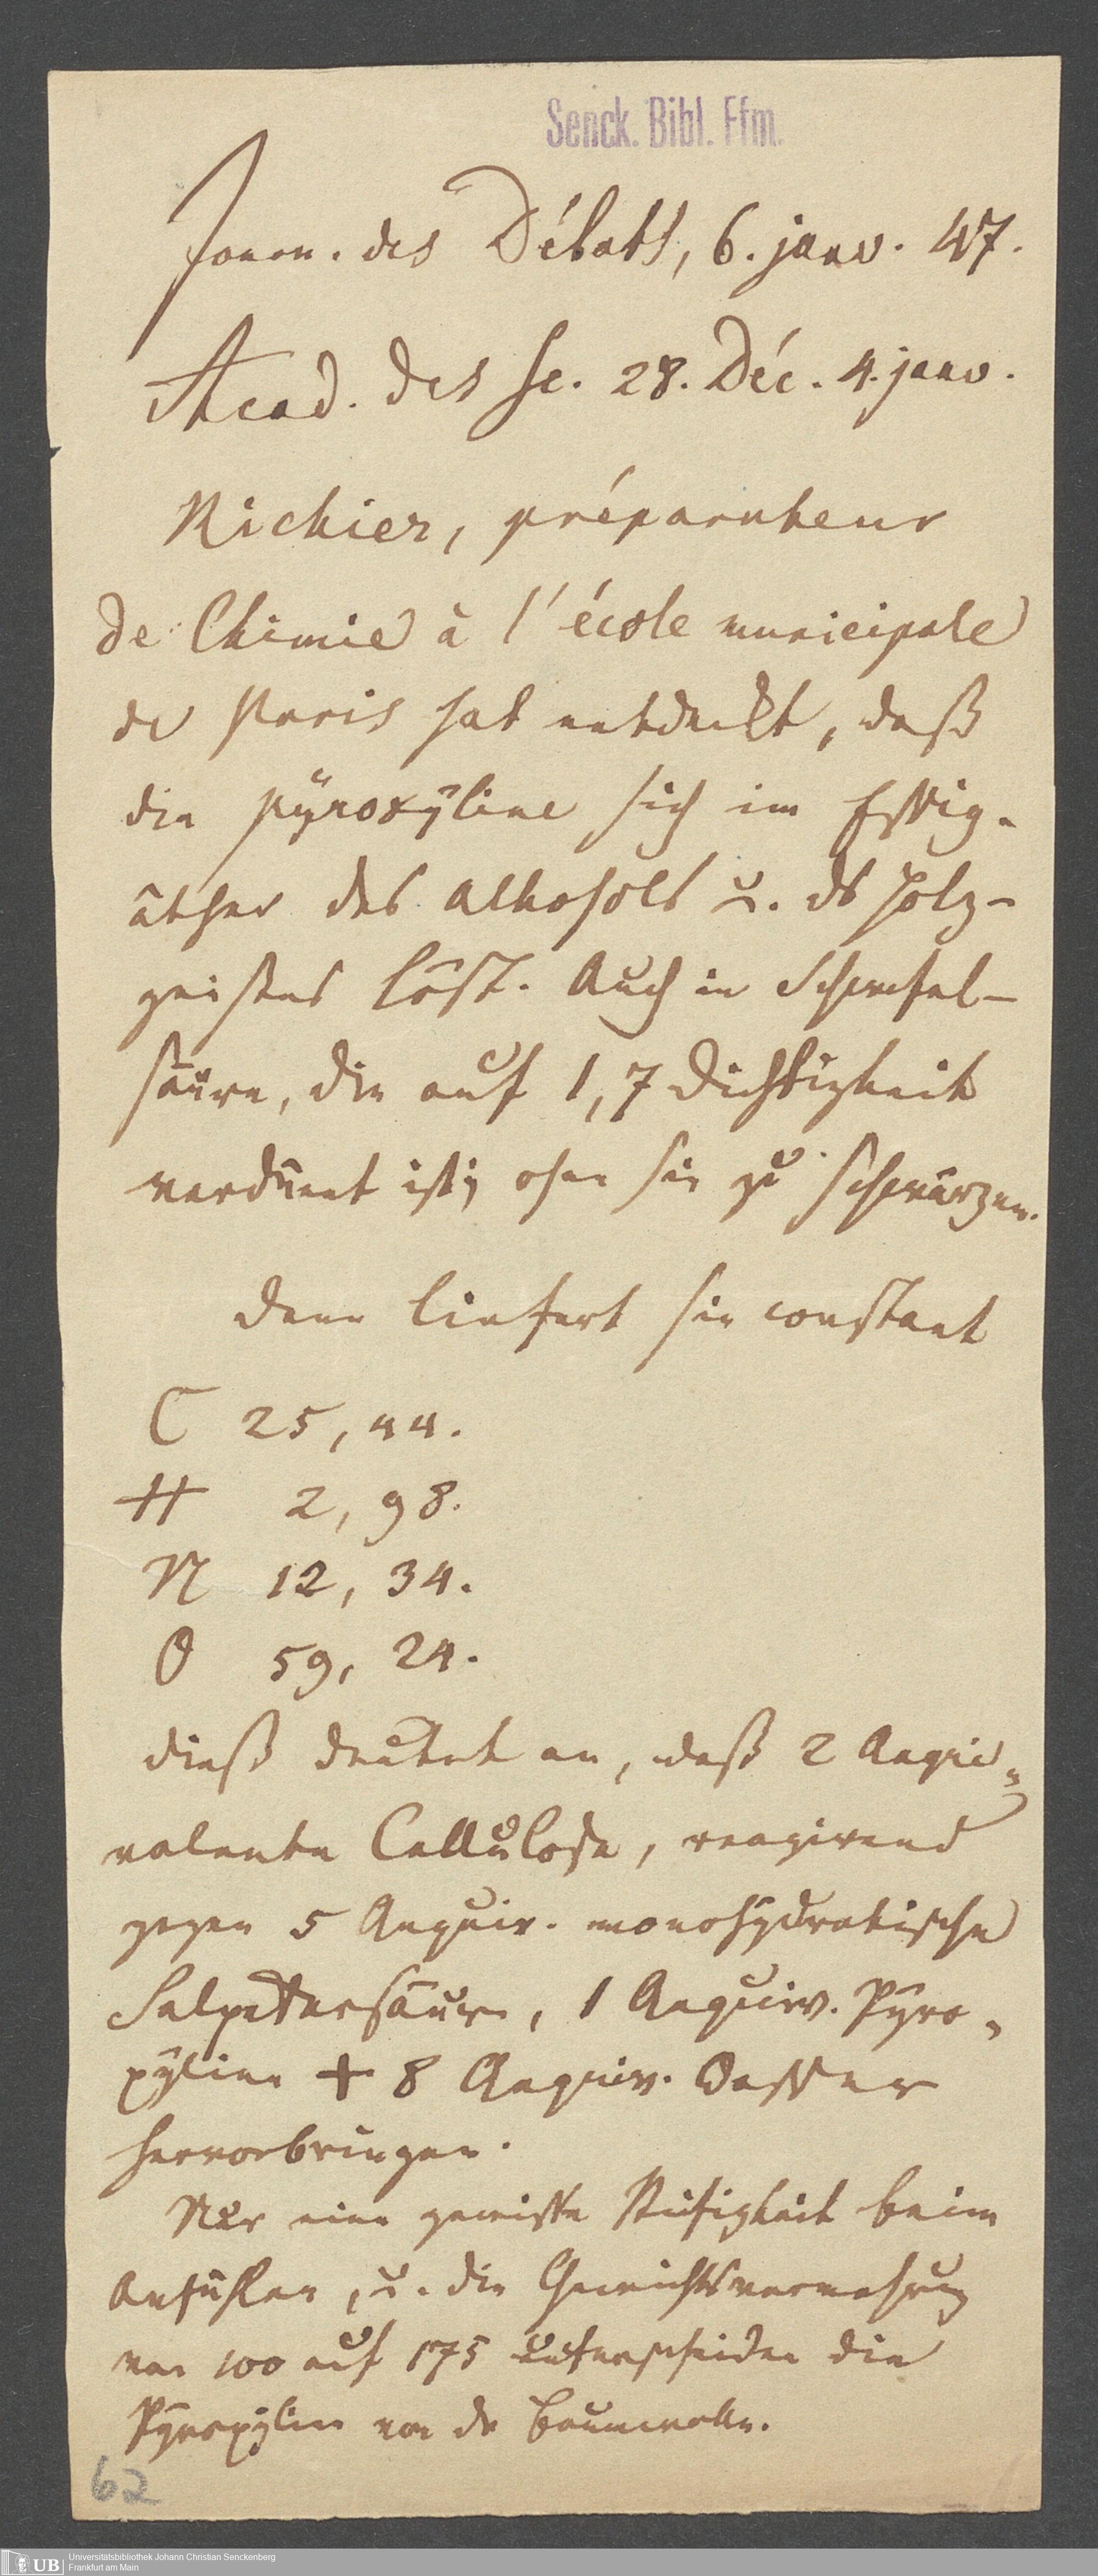 Senck. Bibl. Ffm.
Journ. des Débats, 6. janv. 47.
Acad. des sc. 28. Déc. 4. janv.
Richier, préparateur
de Chimie à l'école municipale
de Paris hat entdeckt, daß
die pyroxyline sich im Essig-
äther des Alkohols u. ds Holz-
geistes löst. Auch in Schwefel-
säure, die auf 1,7 Dichtigkeit
verdünnt ist, ohne sie zu schwärzen.
Denn liefert sie constant
C 25,44.
H 2,98.
N 12,34.
O 59,24.
dieß deutet an, daß 2 Aequi-
valente Cellulose, reagirend
gegen 5 Aequiv. monohydratische
Salpetersäure, 1 Aequiv. Pyro-
xyline + 8 Aequiv. Wasser
hervorbringen.
Nur eine gewisse Steifigkeit beim
Anfühlen, u. die Gewichtsvermehrung
von 100 auf 175 unterscheiden die
Pyroxylin von dr Baumwolle.
62
UB
Universitätsbibliothek Johann Christian Senckenberg
Frankfurt am Main